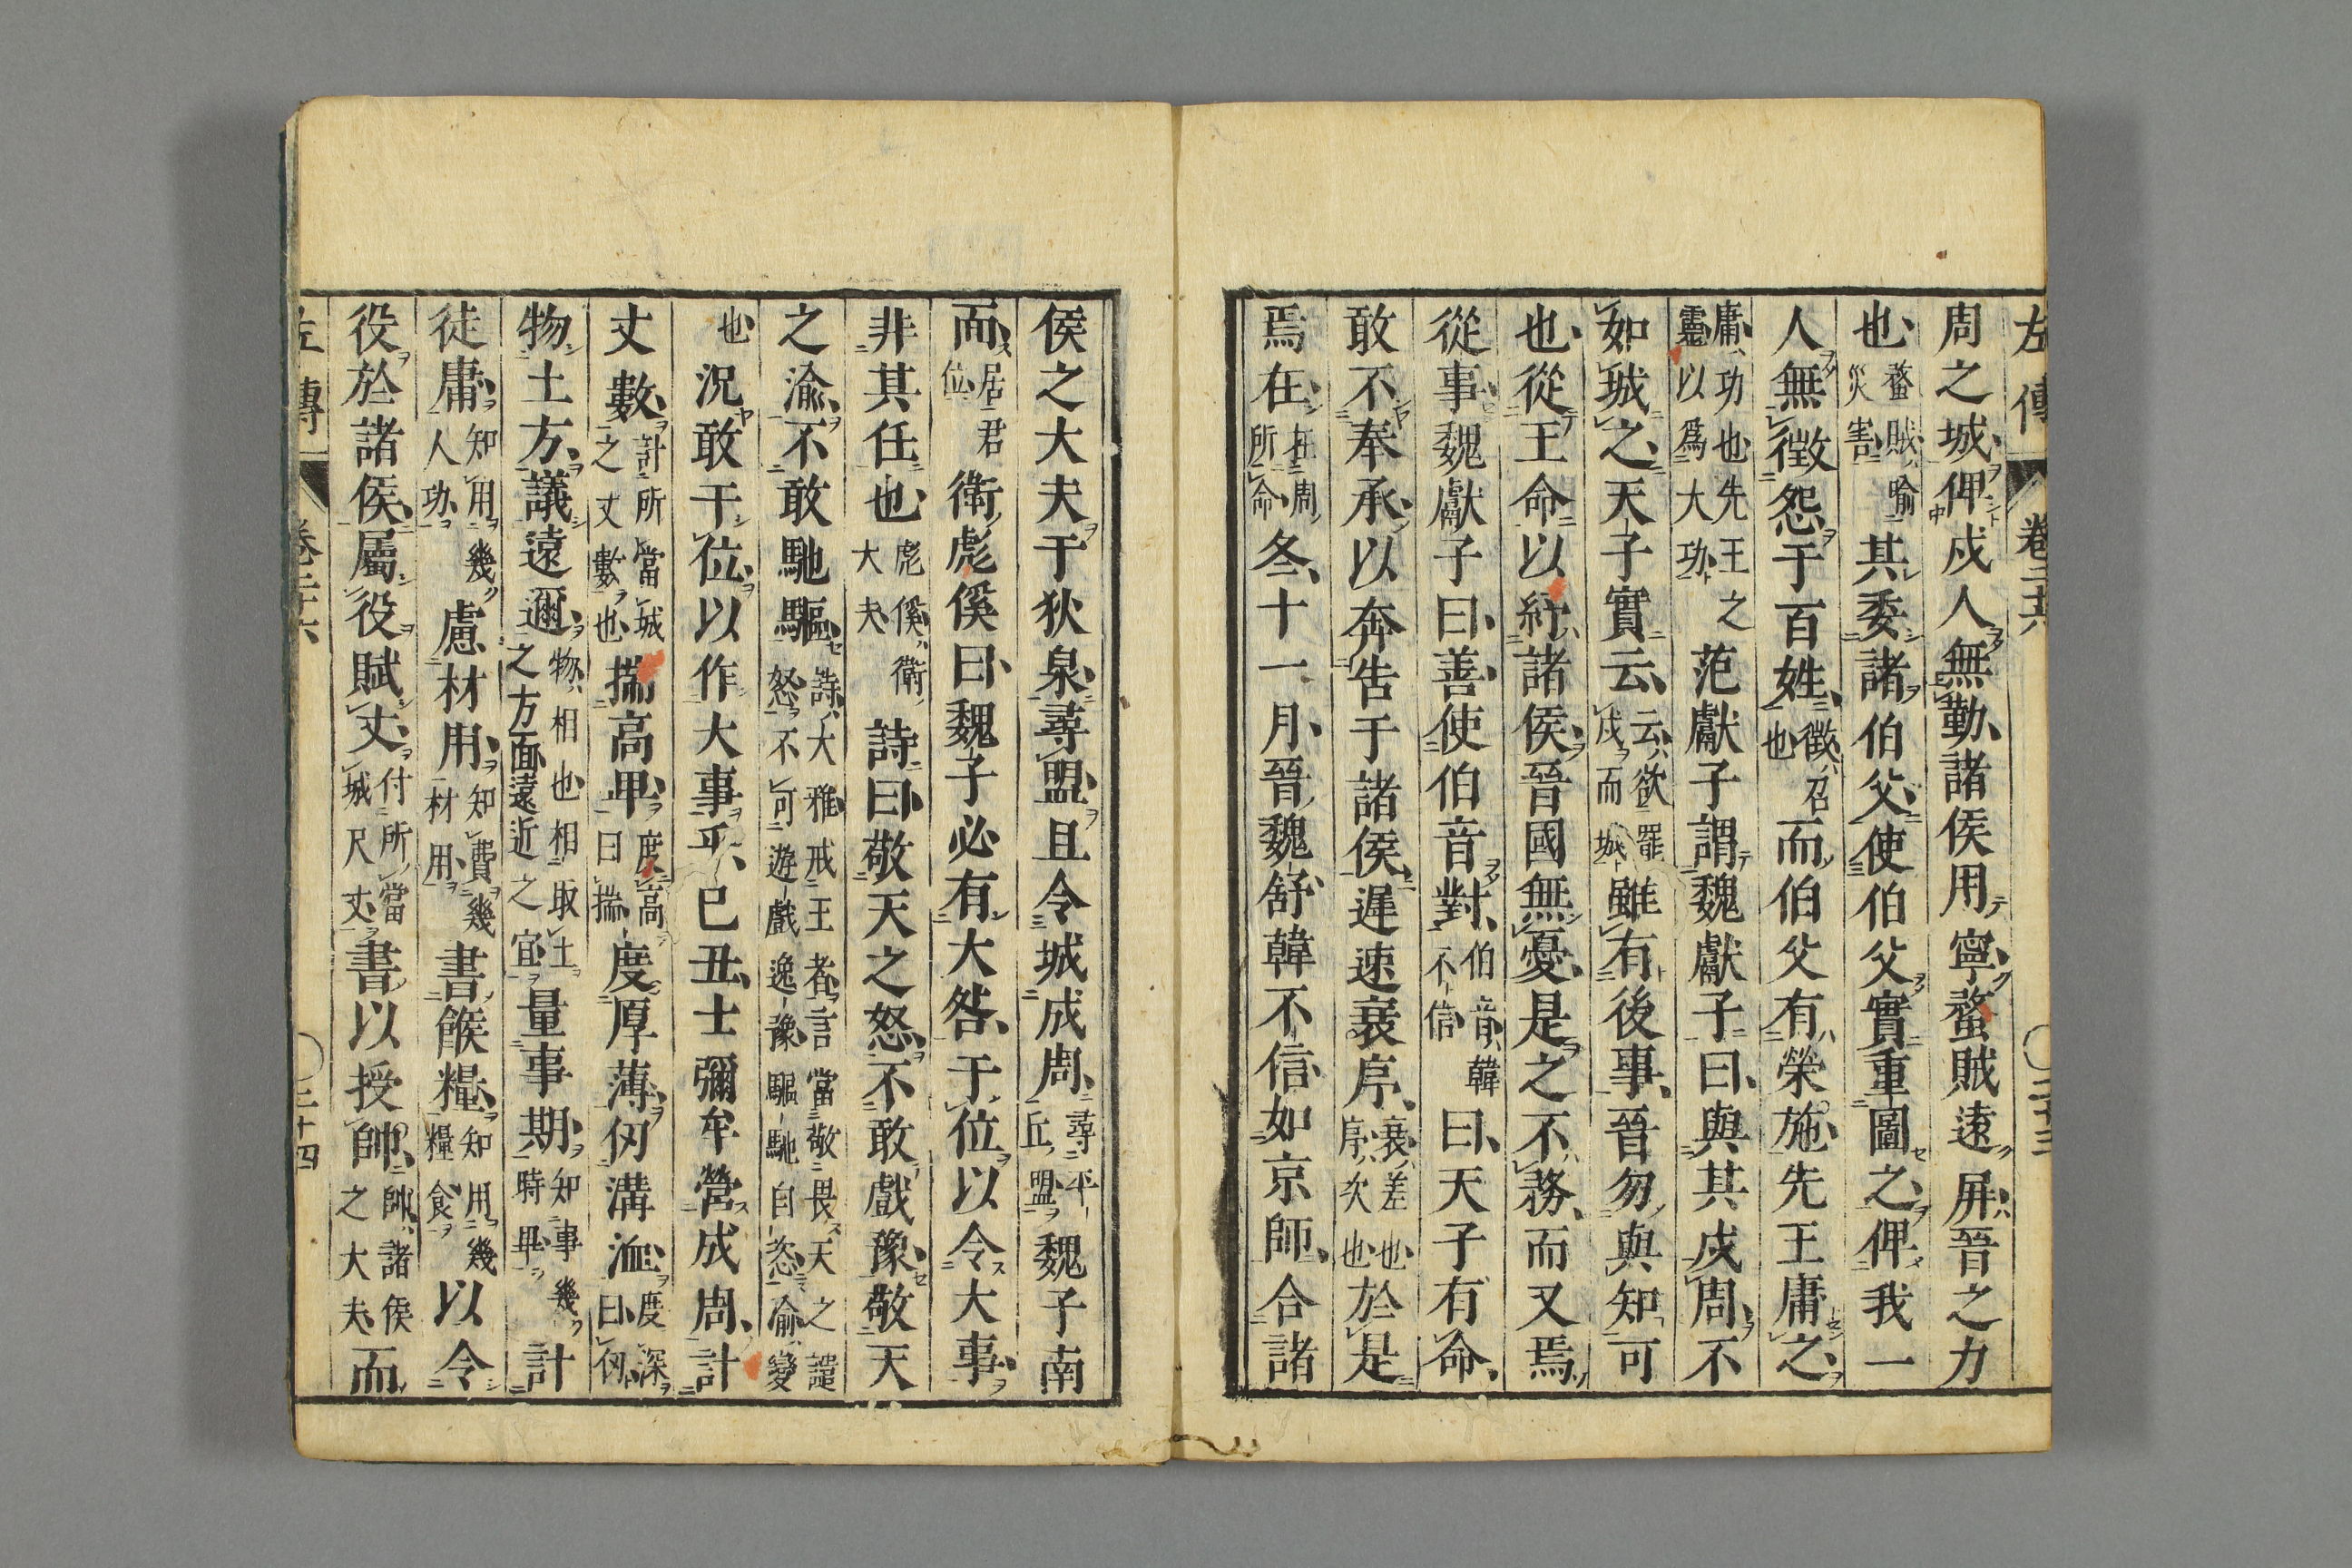 左傳 卷二十六 ○二十三
周之城俾戍人無勤諸侯用寧蝥賊遠屏晉之力
也蝥賊喻災害其委諸伯父使伯父實重圖之俾我一
人無徵怨于百姓徵召也而伯父有榮施先王庸之
庸功也先王之靈以爲大功范獻子謂魏獻子曰與其戍周不
如城之天子實云云欲罷戍而城雖有後事晉勿與知可
也從王命以紓諸侯晉國無憂是之不務而又焉
從事魏獻子曰善使伯音對伯音韓不信曰天子有命
敢不奉承以奔告于諸侯遲速衰序衰差也序次也於是
焉在在周所命冬十一月晉魏舒韓不信如京師合諸
侯之大夫于狄泉尋盟且令城成周尋平丘盟魏子南
面居君位衛彪傒曰魏子必有大咎于位以令大事
非其任也彪傒衛大夫詩曰敬天之怒不敢戲豫敬天
之渝不敢馳驅詩大雅戒王者言當敬畏天之譴怒不可遊戲逸豫驅馳自恣渝變
也况敢干位以作大事乎已丑士彌牟營成周計
丈數計所當城之丈數也揣高卑度高曰揣度厚薄仞溝洫度深曰仞
物土方議遠邇物相也相取土之方面遠近之宜量事期知事幾時畢計
徒庸知用幾人功慮材用知費幾材用書餱糧知用幾糧食以令
役於諸侯屬役賦丈付所當城尺丈書以授帥帥諸侯之大夫而
左傳 卷二十六 ○二十四